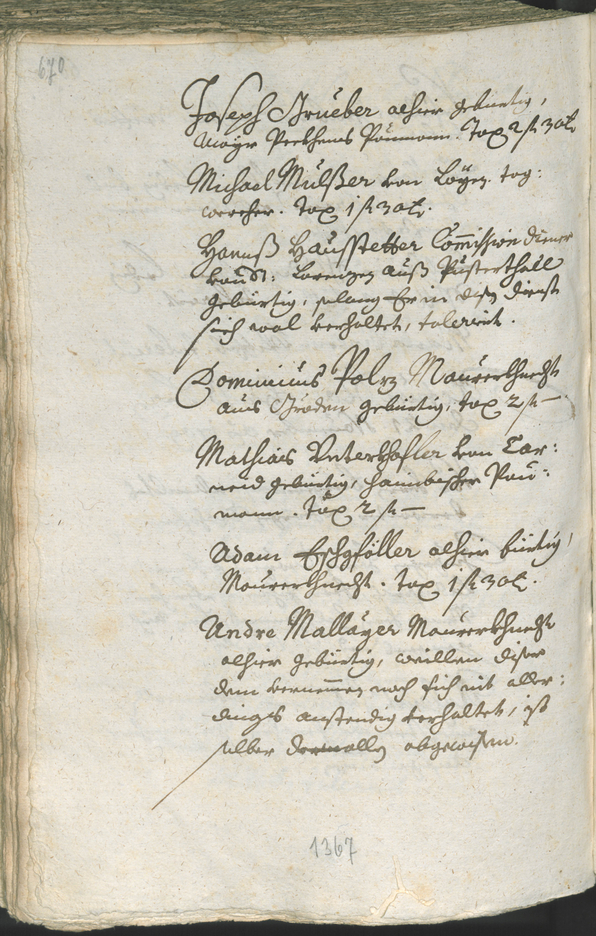 670
Joseph Grueber alhier gebürtig,
Mayr Perkhams Paumann. Tax 2 fl 30 k.
Michael Mülßer von Layen tag:
wercher. Tax 1 fl 30 k.
Hannß Hausstetter Commission diener
von St: Lorenzen auß Pusterthall
gebürtig, solang Er in disen dienst
sich wol verhaltet, toleriert.
Dominicus Polz Maurerkhnecht
aus Gröden gebürtig, tax 2 fl —
Mathias Unterkhofler von Car:
neid gebürtig, haimbischer Pau:
mann. Tax 2 fl —
Adam Eschgföller alhier bürtig,
Maurerkhnecht. Tax 1 fl 30 k.
Andre Mallayer Maurerkhnecht
alhier gebürtig, weillen diser
dem vernemmen nach sich nit aller:
dings anstendig verhaltet, ist
selber dermallen abgewisen.
1367